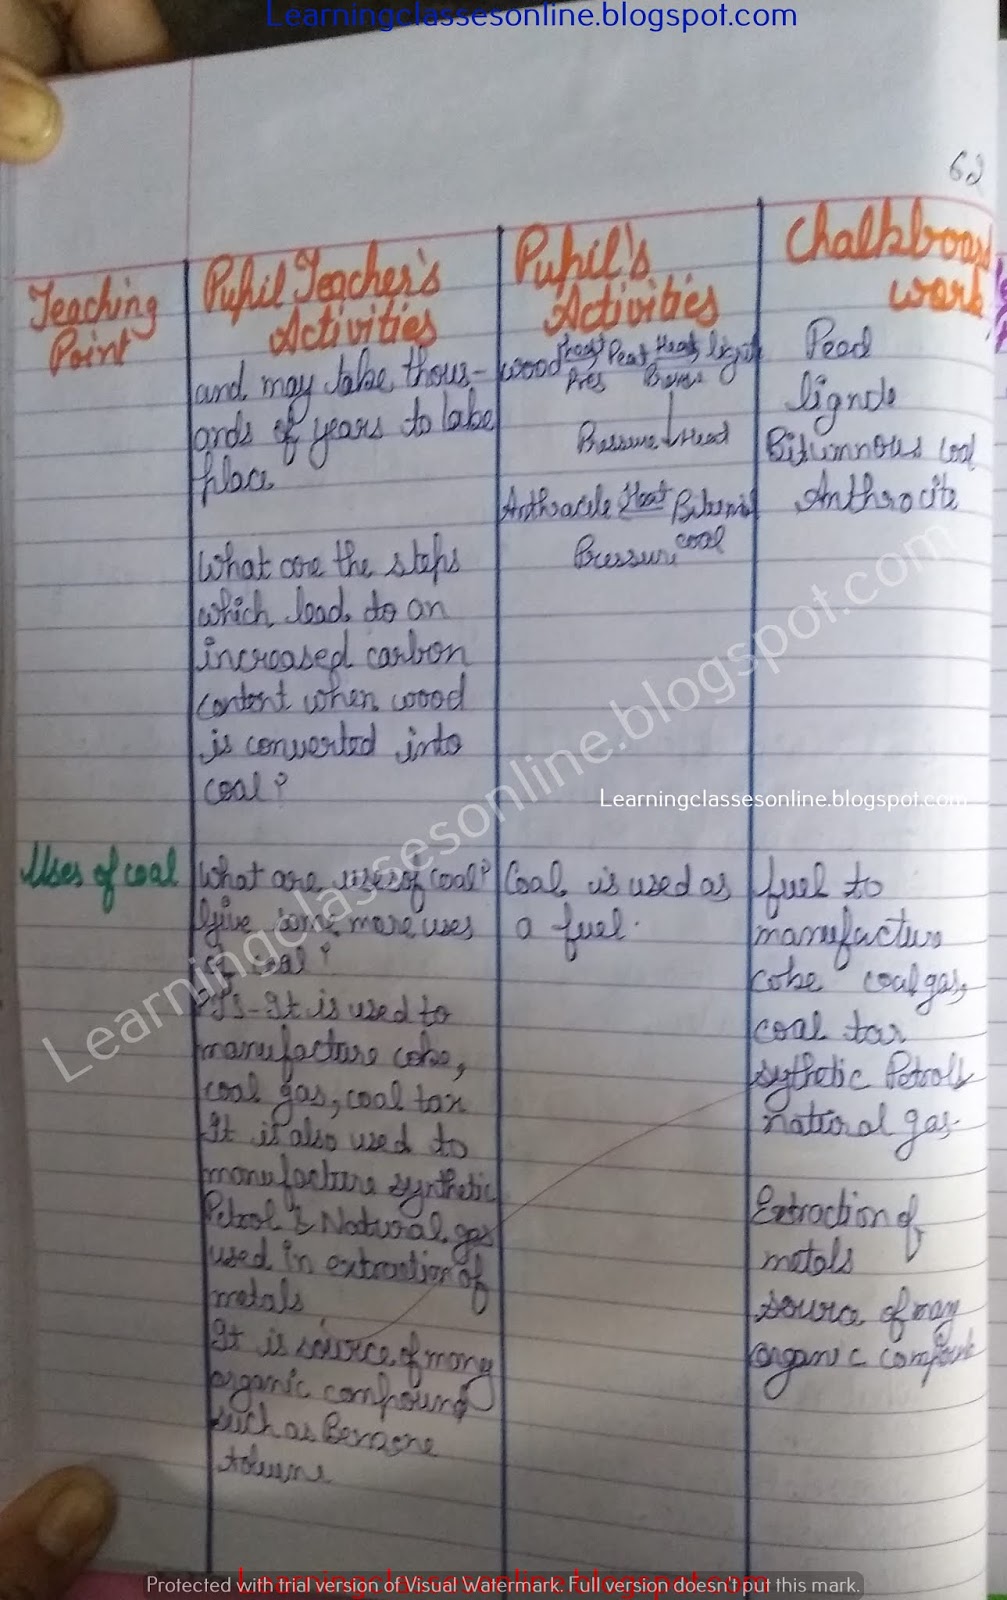 Learningclassesonline.blogspot.com
62
Teaching
Point
Pupil Teacher's
Activities
and may take thous-
ands of years to take
place
What are the steps
which lead to an
increased carbon
content when wood
is converted into
coal?
Pupil's
Activities
wood Heat Peat Heat, lignite
Pres
Pressure Heat
Anthracite Heat
coal
Pressure
Chalkboard
work
Pead
lignde
Bitumnous coal
Anthrocite
Learningclassesonline.blogspot.com
Learningclassesonline.blogspot.com
Uses of coal
What are uses of coal?
Give some more uses
of coal?
P.T.S-It is used to
manufacture coke,
coal gas, coal tar
It is also used to
manufacture synthetic
Petrol & Natural gas
used in extraction of
metals
It is source of many
organic compound
such as Benzene
toluene
Coal is used as
a fuel.
fuel to
manufacture
coke coal gas,
coal tar
sythetic Petrol &
natural gas.
Extraction of
metals
source of may
organic
Learningclassesonline.blogspot.com
Protected with trial version of Visual Watermark. Full version doesn't put this mark.